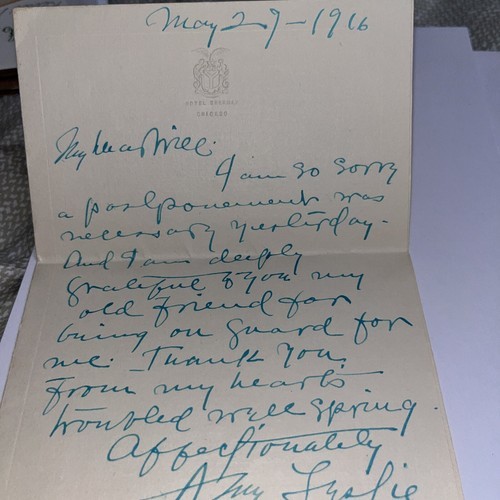 May 29-1916
HOTEL SHERMAN
CHICAGO
My Dear Will:
I am so sorry
a postponement was
necessary yesterday-
And I am deeply
grateful to you my
old friend for
being on guard for
me. Thank you
from my heart's
troubled well spring.
Affectionately
Amy Leslie